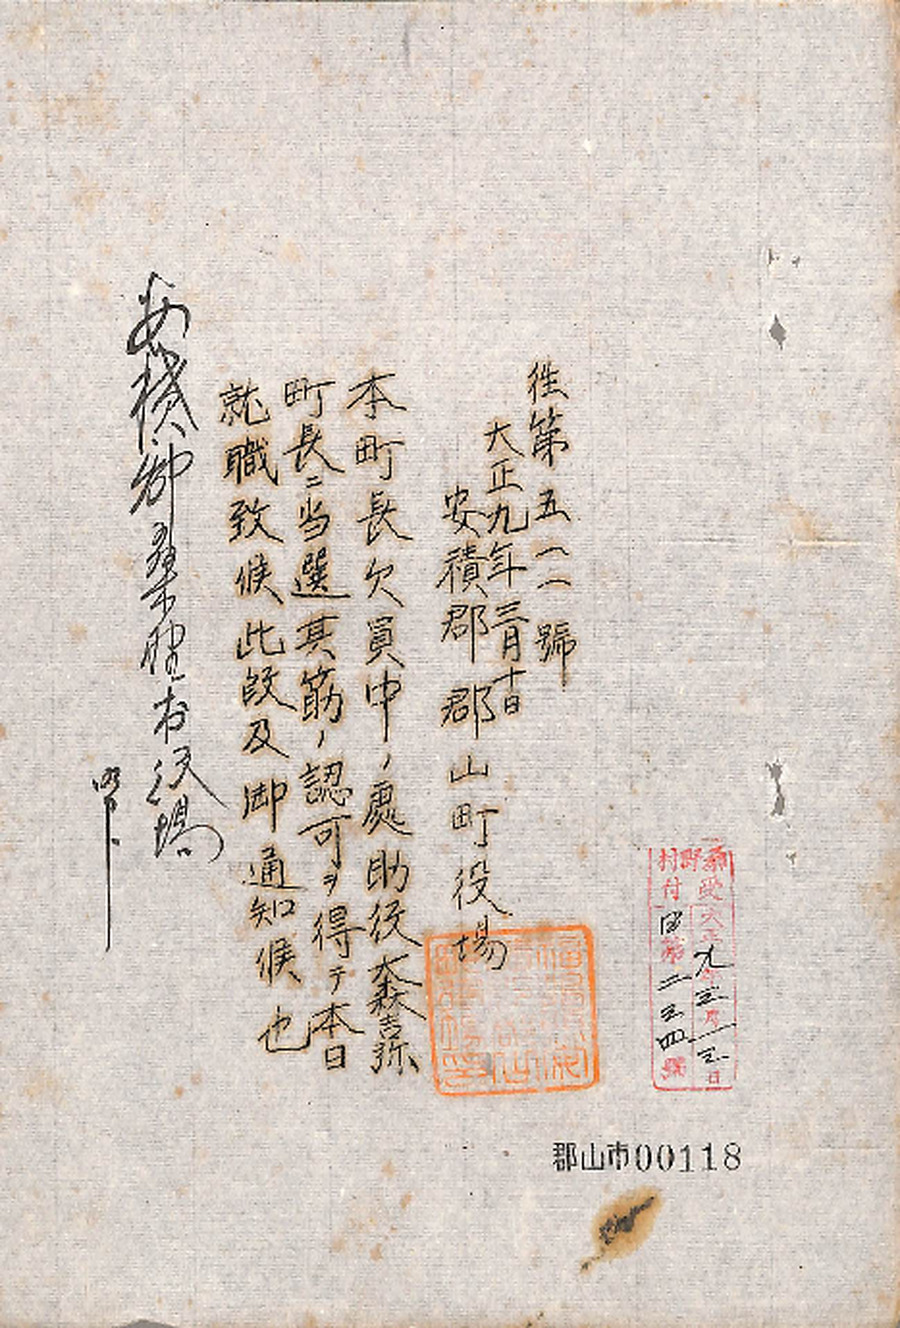 往第五一一號
大正九年三月十日
安積郡郡山町役場
本町長欠員中ノ處助役大森吉弥
町長ニ当選其筋ノ認可ヲ得テ本日
就職致候此段及御通知候也
安積郡桑野村役場
御中
桑野村
受付
大正九年三月一三日
第二三四號
郡山市00118